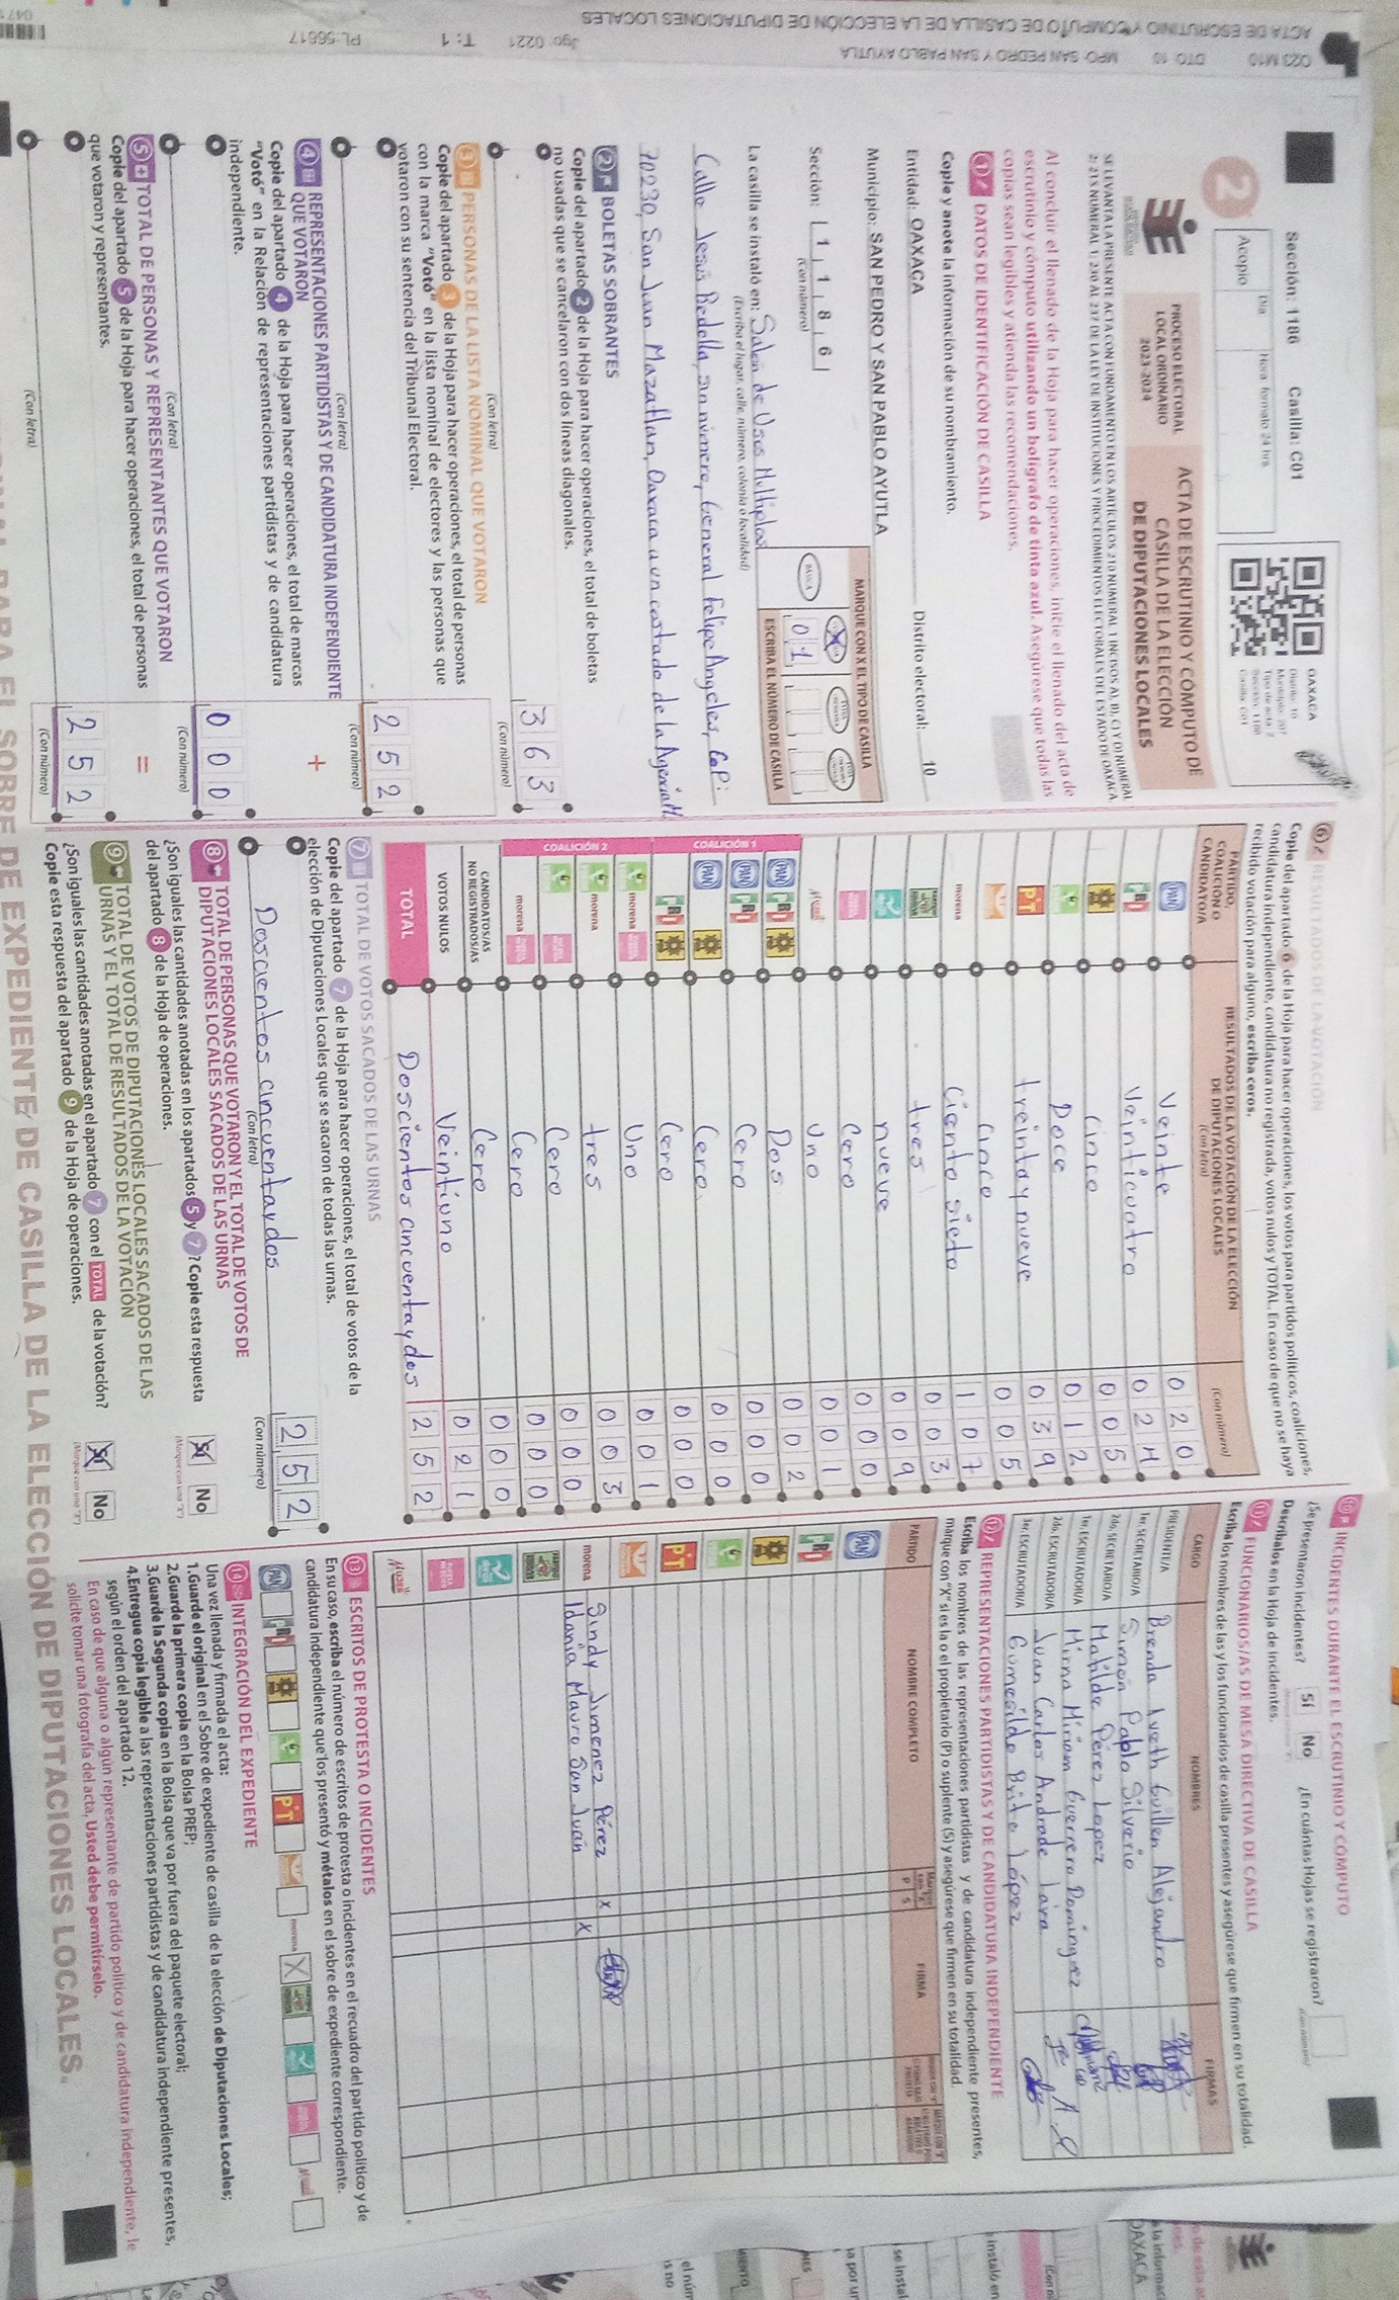 Sección: 1186 Casilla: C01
2
Acopio
Día
Hora formato 24 hrs
OAXACA
PROCESO ELECTORAL
LOCAL ORDINARIO
2023-2024
ACTA DE ESCRUTINIO Y CÓMPUTO DE
CASILLA DE LA ELECCIÓN
DE DIPUTACIONES LOCALES
SE LEVANTA LA PRESENTE ACTA CON FUNDAMENTO EN LOS ARTÍCULOS 210 NUMERAL 1 INCISOS A), B), C) Y D) NUMERAL
2; 215 NUMERAL 1; 230 AL 237 DE LA LEY DE INSTITUCIONES Y PROCEDIMIENTOS ELECTORALES DEL ESTADO DE OAXACA.
Al concluir el llenado de la Hoja para hacer operaciones, inicie el llenado del acta de
escrutinio y cómputo utilizando un bolígrafo de tinta azul. Asegúrese que todas las
copias sean legibles y atienda las recomendaciones.
1 DATOS DE IDENTIFICACIÓN DE CASILLA
Copie y anote la información de su nombramiento.
Entidad: OAXACA Distrito electoral: 10
Municipio: SAN PEDRO Y SAN PABLO AYUTLA
Sección: 1 1 8 6
(Con número)
MARQUE CON X EL TIPO DE CASILLA
BÁSICA
X
0 1
ESCRIBA EL NÚMERO DE CASILLA
La casilla se instaló en: Salon de Usos Multiples
(Escriba el lugar, calle, número, colonia o localidad)
Calle Jesús Redolla, sin número, General Felipe Angeles, C.P:
70230, San Juan Mazatlan, Oaxaca a un costado de la Agencia M
2 BOLETAS SOBRANTES
Copie del apartado 2 de la Hoja para hacer operaciones, el total de boletas
no usadas que se cancelaron con dos líneas diagonales.
3 6 3
(Con letra)
(Con número)
3 PERSONAS DE LA LISTA NOMINAL QUE VOTARON
Copie del apartado 3 de la Hoja para hacer operaciones, el total de personas
con la marca "Votó" en la lista nominal de electores y las personas que
votaron con su sentencia del Tribunal Electoral.
2 5 2
(Con letra)
(Con número)
4 REPRESENTACIONES PARTIDISTAS Y DE CANDIDATURA INDEPENDIENTE
QUE VOTARON
+
Copie del apartado 4 de la Hoja para hacer operaciones, el total de marcas
"Votó" en la Relación de representaciones partidistas y de candidatura
independiente.
0 0 0
(Con letra)
(Con número)
5 TOTAL DE PERSONAS Y REPRESENTANTES QUE VOTARON
=
Copie del apartado 5 de la Hoja para hacer operaciones, el total de personas
que votaron y representantes.
2 5 2
(Con letra)
(Con número)
6 RESULTADOS DE LA VOTACIÓN
Copie del apartado 6 de la Hoja para hacer operaciones, los votos para partidos políticos, coaliciones,
candidatura independiente, candidatura no registrada, votos nulos y TOTAL. En caso de que no se haya
recibido votación para alguno, escriba ceros.
PARTIDO, COALICIÓN O CANDIDATO/A
RESULTADOS DE LA VOTACIÓN DE LA ELECCIÓN DE DIPUTACIONES LOCALES
(Con letra)
(Con número)
PAN Veinte 0 2 0
PRI Veinticuatro 0 2 4
PRD Cinco 0 0 5
Doce 0 1 2
PT treinta y nueve 0 3 9
cinco 0 0 5
morena Ciento siete 1 0 7
tres 0 0 3
nueve 0 0 9
Cero 0 0 0
Uno 0 0 1
COALICIÓN 1
PAN PRI PRD Dos 0 0 2
PAN PRI Cero 0 0 0
PAN PRD Cero 0 0 0
PRI PRD Cero 0 0 0
COALICIÓN 2
morena Uno 0 0 1
morena tres 0 0 3
Cero 0 0 0
morena Cero 0 0 0
CANDIDATOS/AS NO REGISTRADOS/AS Cero 0 0 0
VOTOS NULOS Veintiuno 0 2 1
TOTAL Doscientos cincuenta y dos 2 5 2
7 TOTAL DE VOTOS SACADOS DE LAS URNAS
Copie del apartado 7 de la Hoja para hacer operaciones, el total de votos de la
elección de Diputaciones Locales que se sacaron de todas las urnas.
Doscientos cincuenta y dos 2 5 2
(Con letra)
(Con número)
8 TOTAL DE PERSONAS QUE VOTARON Y EL TOTAL DE VOTOS DE
DIPUTACIONES LOCALES SACADOS DE LAS URNAS
¿Son iguales las cantidades anotadas en los apartados 5 y 7? Copie esta respuesta
del apartado 8 de la Hoja de operaciones.
Sí No
9 TOTAL DE VOTOS DE DIPUTACIONES LOCALES SACADOS DE LAS
URNAS Y EL TOTAL DE RESULTADOS DE LA VOTACIÓN
¿Son iguales las cantidades anotadas en el apartado 7 con el TOTAL de la votación?
Copie esta respuesta del apartado 9 de la Hoja de operaciones.
Sí No
10 INCIDENTES DURANTE EL ESCRUTINIO Y CÓMPUTO
¿Se presentaron incidentes? Sí No ¿En cuántas Hojas se registraron?
Descríbalos en la Hoja de incidentes.
11 FUNCIONARIOS/AS DE MESA DIRECTIVA DE CASILLA
Escriba los nombres de las y los funcionarios de casilla presentes y asegúrese que firmen en su totalidad.
CARGO NOMBRES FIRMAS
PRESIDENTE/A Brenda Iveth Guillen Alejandro
1er. SECRETARIO/A Simón Pablo Silverio
2do. SECRETARIO/A Matilde Pérez Lopez
1er. ESCRUTADOR/A Mirna Miriam Guerrero Dominguez
2do. ESCRUTADOR/A Juan Carlos Andrade Lara
3er. ESCRUTADOR/A Gumesildo Brito López
12 REPRESENTACIONES PARTIDISTAS Y DE CANDIDATURA INDEPENDIENTE
Escriba los nombres de las representaciones partidistas y de candidatura independiente presentes,
marque con "X" si es la o el propietario (P) o suplente (S) y asegúrese que firmen en su totalidad.
PARTIDO NOMBRE COMPLETO P S FIRMA
PAN
PRI
PRD
PT
morena Sindy Jimenez Pérez X
Idania Mauro San Juan X
13 ESCRITOS DE PROTESTA O INCIDENTES
En su caso, escriba el número de escritos de protesta o incidentes en el recuadro del partido político y de
candidatura independiente que los presentó y métalos en el sobre de expediente correspondiente.
PAN PRI PRD PT morena X
14 INTEGRACIÓN DEL EXPEDIENTE
Una vez llenada y firmada el acta:
1.Guarde el original en el Sobre de expediente de casilla de la elección de Diputaciones Locales;
2.Guarde la primera copia en la Bolsa PREP;
3.Guarde la Segunda copia en la Bolsa que va por fuera del paquete electoral;
4.Entregue copia legible a las representaciones partidistas y de candidatura independiente presentes,
según el orden del apartado 12.
En caso de que alguna o algún representante de partido político y de candidatura independiente, le
solicite tomar una fotografía del acta, Usted debe permitírselo.
SOBRE DE EXPEDIENTE DE CASILLA DE LA ELECCIÓN DE DIPUTACIONES LOCALES.
023 M10 DTO: 10 MPO: SAN PEDRO Y SAN PABLO AYUTLA
ACTA DE ESCRUTINIO Y CÓMPUTO DE CASILLA DE LA ELECCIÓN DE DIPUTACIONES LOCALES
Jgo: 0221 T: 1 PL: 56617